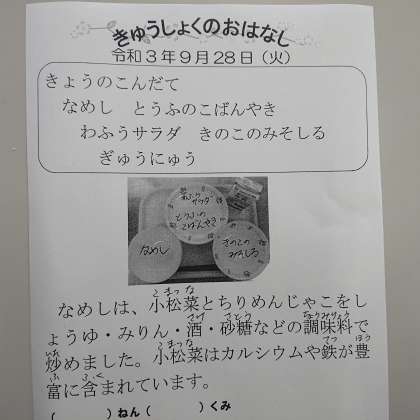 きゅうしょくのおはなし
令和3年9月28日（火）
きょうのこんだて
なめし　とうふのこばんやき
わふうサラダ　きのこのみそしる
ぎゅうにゅう
わふう
サラダ
とうふの
こばんやき
なめし
きのこの
みそしる
なめしは、小松菜とちりめんじゃこをし
ょうゆ・みりん・酒・砂糖などの調味料で
炒めました。小松菜はカルシウムや鉄が豊
富に含まれています。
（　　　）ねん（　　　）くみ